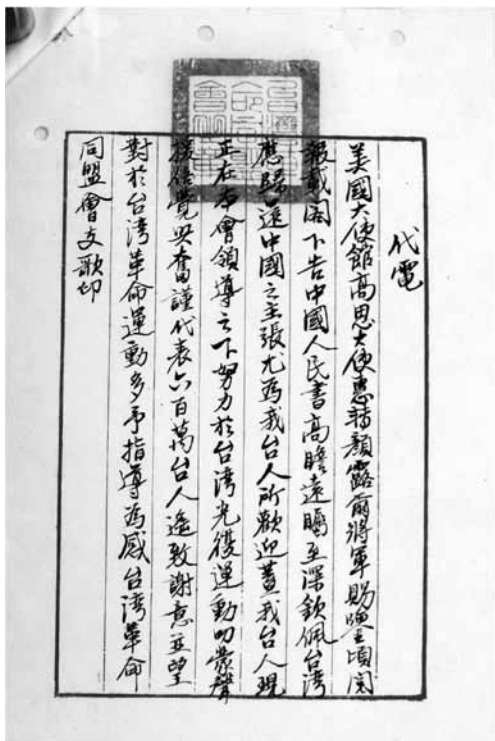 代電
美國大使館高思大使惠轉顏露爾將軍賜鑒頃閱
報載閣下告中國人民書高瞻遠矚至深欽佩台灣
應歸還中國之主張尤為我台人所歡迎蓋我台人現
正在本會領導之下努力於台灣光復運動叨蒙聲
援倍覺興奮謹代表六百萬台人遙致謝意並望
對於台湾革命運動多予指導為感台湾革命
同盟會支歌印